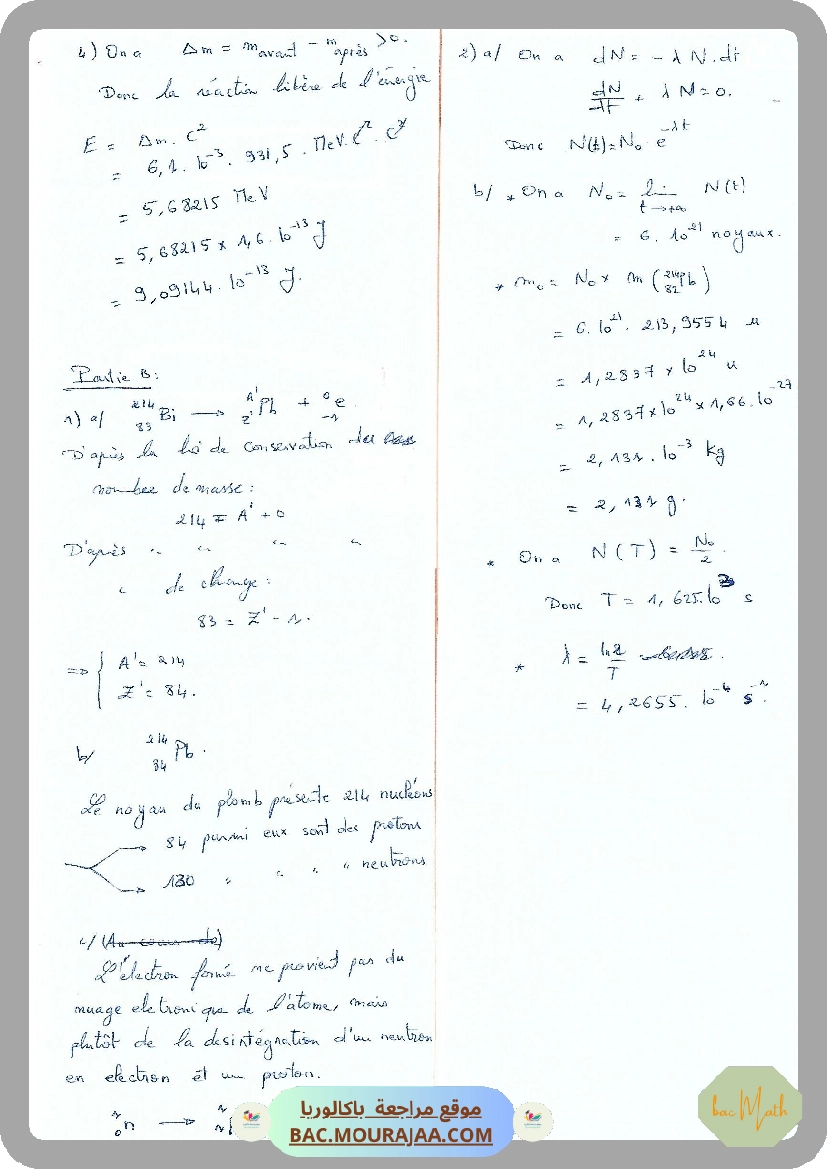 4) On a Δm = m avant - m après > 0.
Donc la réaction libère de l'énergie
E = Δm . C²
= 6,1 . 10⁻³ . 931,5 . MeV. C⁻² . C²
= 5,68215 MeV
= 5,68215 x 1,6 . 10⁻¹³ J
= 9,09144 . 10⁻¹³ J.
Partie B:
1) a/ ²¹⁴₈₃Bi → ᴬ'_Z'Pb + ⁰₋₁e
D'après la loi de conservation du
nombre de masse :
214 = A' + 0
D'après " " " "
" de charge :
83 = Z' - 1.
=> { A' = 214
Z' = 84.
b/ ²¹⁴₈₄Pb.
Le noyau du plomb présente 214 nucléons
84 parmi eux sont des protons
130 " " " " neutrons
c/ (Au cours de)
L'électron formé ne provient pas du
nuage eletronique de l'âtome, mais
plutôt de la desintégration d'un neutron
en electron et un proton.
¹₀n →
2) a/ On a dN = - λ N. dt
dN/dt + λ N = 0.
Donc N(t) = N₀ e^-λt
b/ * On a N₀ = lim t→+∞ N(t)
= 6. 10²¹ noyaux.
* m₀ = N₀ x m (²¹⁴₈₂Pb)
= 6. 10²¹ . 213,9554 u
= 1,2837 x 10²⁴ u
= 1,2837 x 10²⁴ x 1,66. 10⁻²⁷
= 2,131 . 10⁻³ kg
= 2,131 g.
* On a N(T) = N₀/2.
Donc T = 1,625.10³ s
* λ = ln2/T
= 4,2655. 10⁻⁴ s⁻¹.
موقع مراجعة باكالوريا
BAC.MOURAJAA.COM
bac Math